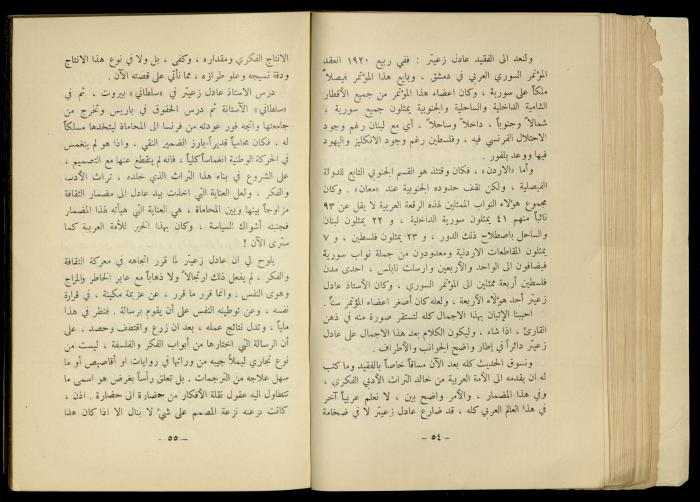 ولنعد الى الفقيد عادل زعيتر : ففي ربيع ١٩٢٠ انعقد
المؤتمر السوري العربي في دمشق ، وبايع هذا المؤتمر فيصلاً
ملكاً على سورية ، وكان اعضاء هذا المؤتمر من جميع الأقطار
الشامية الداخلية والساحلية والجنوبية يمثلون جميع سورية ،
شمالاً وجنوباً ، داخلاً وساحلاً ، أي مع لبنان رغم وجود
الاحتلال الفرنسي فيه ، وفلسطين رغم وجود الانكليز واليهود
فيها ووعد بلفور .
وأما «الاردن» ، فكان وقتئذ هو القسم الجنوبي التابع للدولة
الفيصلية ، ولكن تقف حدوده الجنوبية عند «معان» . وكان
مجموع هؤلاء النواب الممثلين لهذه الرقعة العربية لا يقل عن ٩٣
نائباً منهم ٤١ يمثلون سورية الداخلية ، و ٢٢ يمثلون لبنان
والساحل باصطلاح ذلك الدور ، و ٢٣ يمثلون فلسطين ، و ٧
يمثلون المقاطعات الاردنية ومعدودون من جملة نواب سورية
فيضافون الى الواحد والأربعين وارسلت نابلس ، احدى مدن
فلسطين أربعة ممثلين الى المؤتمر السوري ، وكان الأستاذ عادل
زعيتر أحد هؤلاء الأربعة ، ولعله كان أصغر اعضاء المؤتمر سناً .
احببنا الإتيان بهذا الاجمال كله لتستقر صورة منه في ذهن
القارئ ، اذا شاء ، وليكون الكلام بعد هذا الاجمال على عادل
زعيتر دائراً في إطار واضح الجوانب والأطراف .
ونسوق الحديث كله بعد الآن مساقاً خاصاً بالفقيد وما كتب
له ان يقدمه الى الأمة العربية من خالد التراث الأدبي الفكري ،
وفي هذا المضمار ، والأمر واضح بين ، لا نعلم عربياً آخر
في هذا العالم العربي كله ، قد ضارع عادل زعيتر لا في ضخامة
– ٥٤ –
الانتاج الفكري ومقداره ، وكفى ، بل ولا في نوع هذا الانتاج
ودقة نسيجه وعلو طرازه ، مما نأتي على قصته الآن .
درس الاستاذ عادل زعيتر في «سلطاني» بيروت ، ثم في
«سلطاني» الآستانة ثم درس الحقوق في باريس وتخرج من
جامعتها واتجه فور عودته من فرنسا الى المحاماة ليتخذها مسلكاً
له ، فكان محامياً قديراً – بارز الضمير النقي ، واذا هو لم ينغمس
في الحركة الوطنية انغماساً كلياً ، فانه لم ينقطع عنها مع التصميم ،
على الشروع في بناء هذا التراث الذي خلده ، تراث الأدب
والفكر ، ولعل العناية التي اخذت بيد عادل الى مضمار الثقافة
مزاوجاً بينها وبين المحاماة ، هي العناية التي هيأته لهذا المضمار
فجنبته أشواك السياسة ، وكان بهذا الخير للأمة العربية كما
سترى الآن !
يلوح لي ان عادل زعيتر لما قرر اتجاهه في معركة الثقافة
والفكر ، لم يفعل ذلك ارتجالاً ولا ذهاباً مع عابر الخاطر والمزاج
وهوى النفس . وانما قرر ما قرر ، عن عزيمة مكينة ، في قرارة
نفسه ، وعن توطينه النفس على أن يقوم برسالة . فنظر في هذا
ملياً ، وتدل نتائج عمله ، بعد ان زرع واقتطف وحصد ، على
أن الرسالة التي اختارها من أبواب الفكر والفلسفة ، ليست من
نوع تجاري ليملأ جيبه من ورائها في روايات او أقاصيص أو ما
سهل علاجه من الترجمات . بل تعلق رأساً بغرض هو اسمى ما
تتطاول اليه عقول نقلة الأفكار من حضارة الى حضارة . اذن ،
كانت نزعته نزعة المصمم على شيء لا ينال الا اذا كان هذا
– ٥٥ –